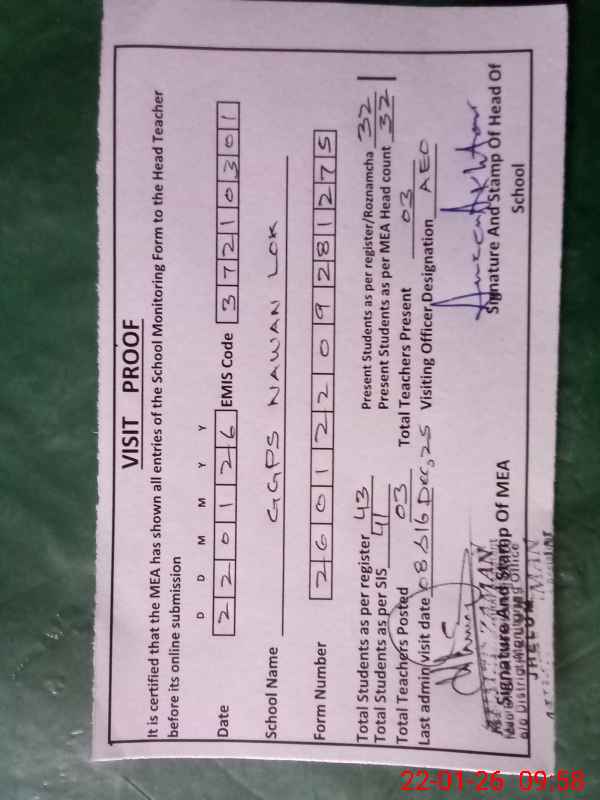 VISIT PROOF
It is certified that the MEA has shown all entries of the School Monitoring Form to the Head Teacher
before its online submission
D D M M Y Y
Date 2 2 0 1 2 6 EMIS Code 3 7 2 1 0 3 0 1
School Name GGPS NAWAN LOK
Form Number 2 6 0 1 2 2 0 9 2 8 1 2 7 5
Total Students as per register 43 Present Students as per register/Roznamcha 32
Total Students as per SIS 41 Present Students as per MEA Head count 32
Total Teachers Posted 03 Total Teachers Present 03
Last admin visit date 08 & 16 Dec, 25 Visiting Officer, Designation AEO
Signature And Stamp Of MEA Signature And Stamp Of Head Of
School
o/o District Monitoring Office
JHELUM
22-01-26 09:58